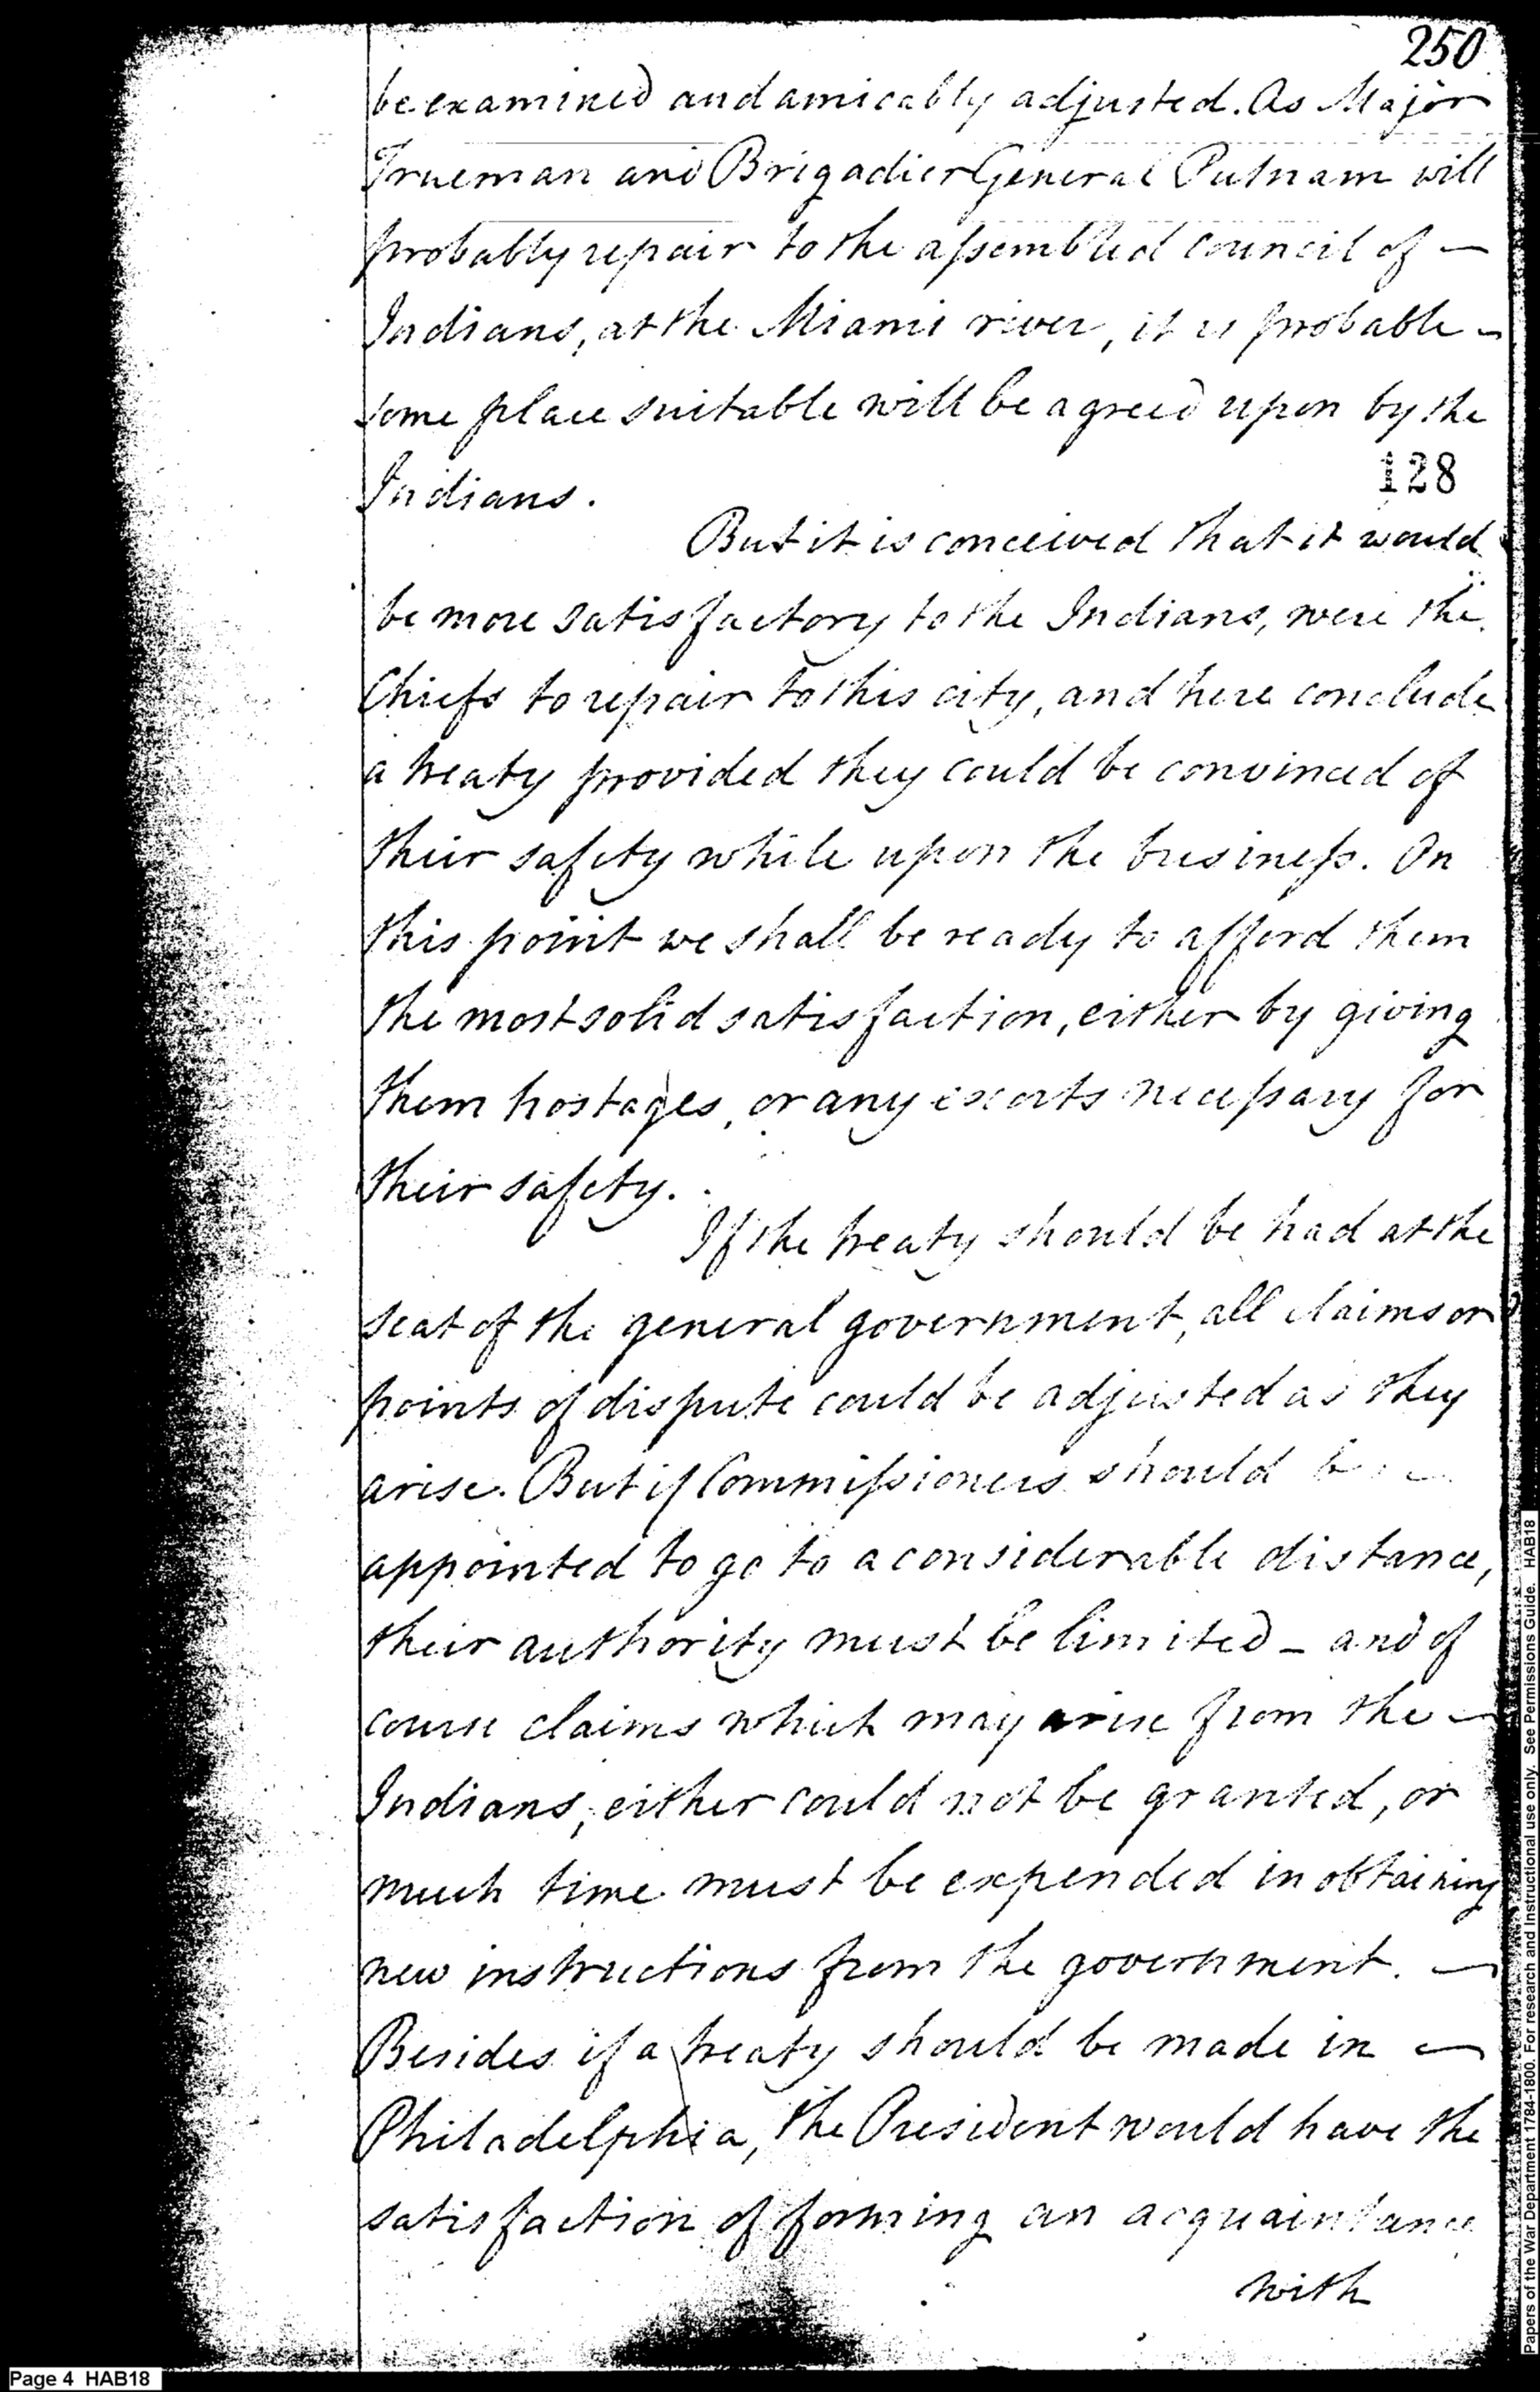 250
be examined and amicably adjusted. As Major
Trueman and Brigadier General Putnam will
probably repair to the assembled council of —
Indians, at the Miami river, it is probable —
some place suitable will be agreed upon by the
Indians.
128
But it is conceived that it would
be more satisfactory to the Indians, were the
Chiefs to repair to this city, and here conclude
a treaty provided they could be convinced of
their safety while upon the business. On
this point we shall be ready to afford them
the most solid satisfaction, either by giving
them hostages, or any escorts necessary for
their safety.
If the treaty should be had at the
seat of the general government, all claims or
points of dispute could be adjusted as they
arise. But if Commissioners should be —
appointed to go to a considerable distance,
their authority must be limited — and of
course claims which may arise from the —
Indians, either could not be granted, or
much time must be expended in obtaining
new instructions from the government. —
Besides if a treaty should be made in —
Philadelphia, the President would have the
satisfaction of forming an acquaintance
with
Page 4 HAB18
Papers of the War Department 1784-1800. For research and instructional use only. See Permissions Guide. HAB18